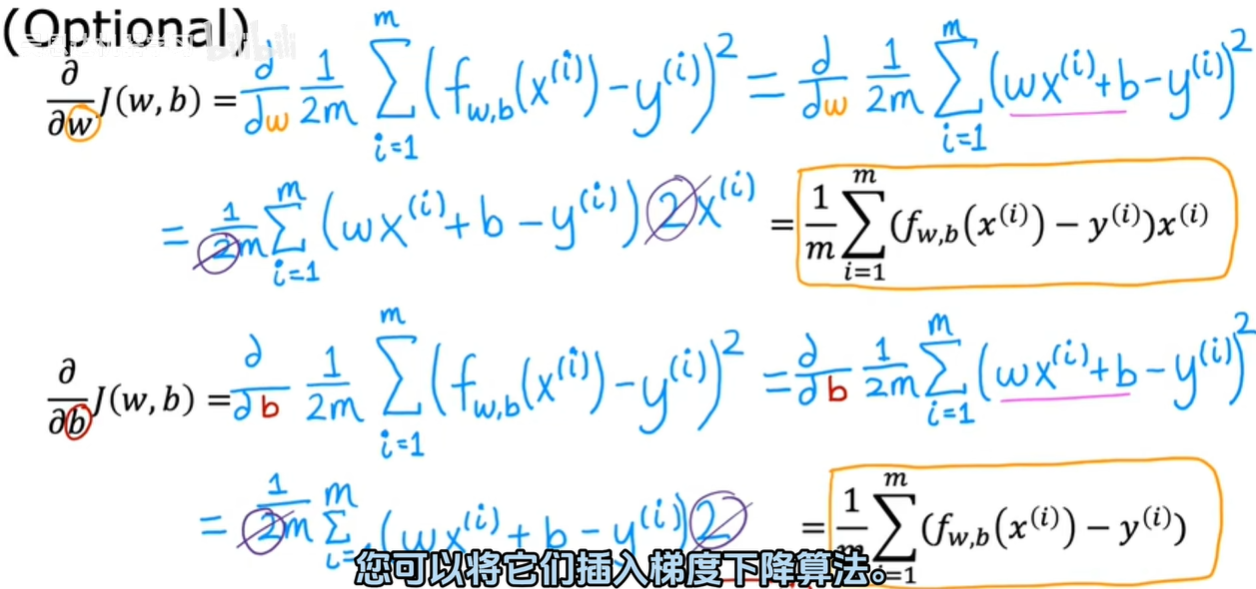 (Optional)
bilibili
∂/∂w J(w, b) = ∂/∂w 1/2m ∑_{i=1}^{m} (f_{w,b}(x^{(i)}) - y^{(i)})^2 = ∂/∂w 1/2m ∑_{i=1}^{m} (wx^{(i)} + b - y^{(i)})^2
= 1/2m ∑_{i=1}^{m} (wx^{(i)} + b - y^{(i)}) 2x^{(i)} = 1/m ∑_{i=1}^{m} (f_{w,b}(x^{(i)}) - y^{(i)})x^{(i)}
∂/∂b J(w, b) = ∂/∂b 1/2m ∑_{i=1}^{m} (f_{w,b}(x^{(i)}) - y^{(i)})^2 = ∂/∂b 1/2m ∑_{i=1}^{m} (wx^{(i)} + b - y^{(i)})^2
= 1/2m ∑_{i=1}^{m} (wx^{(i)} + b - y^{(i)}) 2 = 1/m ∑_{i=1}^{m} (f_{w,b}(x^{(i)}) - y^{(i)})
您可以将它们插入梯度下降算法。